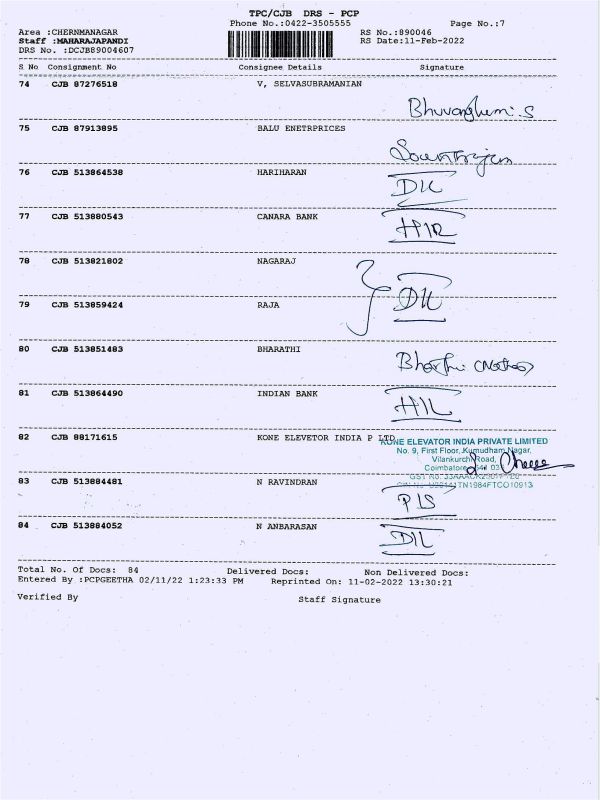 TPC/CJB DRS - PCP
Phone No.:0422-3505555 Page No.:7
Area :CHERNMANAGAR RS No.:890046
Staff :MAHARAJAPANDI RS Date:11-Feb-2022
DRS No. :DCJB89004607
S No Consignment No Consignee Details Signature
74 CJB 87276518 V, SELVASUBRAMANIAN
75 CJB 87913895 BALU ENETRPRICES
76 CJB 513864538 HARIHARAN
77 CJB 513880543 CANARA BANK
78 CJB 513821802 NAGARAJ
79 CJB 513859424 RAJA
80 CJB 513851483 BHARATHI
81 CJB 513864490 INDIAN BANK
82 CJB 88171615 KONE ELEVETOR INDIA P LTD
KONE ELEVATOR INDIA PRIVATE LIMITED
No. 9, First Floor, Kumudham Nagar,
Vilankurchi Road,
Coimbatore
83 CJB 513884481 N RAVINDRAN
84 CJB 513884052 N ANBARASAN
Total No. Of Docs: 84 Delivered Docs: Non Delivered Docs:
Entered By :PCPGEETHA 02/11/22 1:23:33 PM Reprinted On: 11-02-2022 13:30:21
Verified By Staff Signature